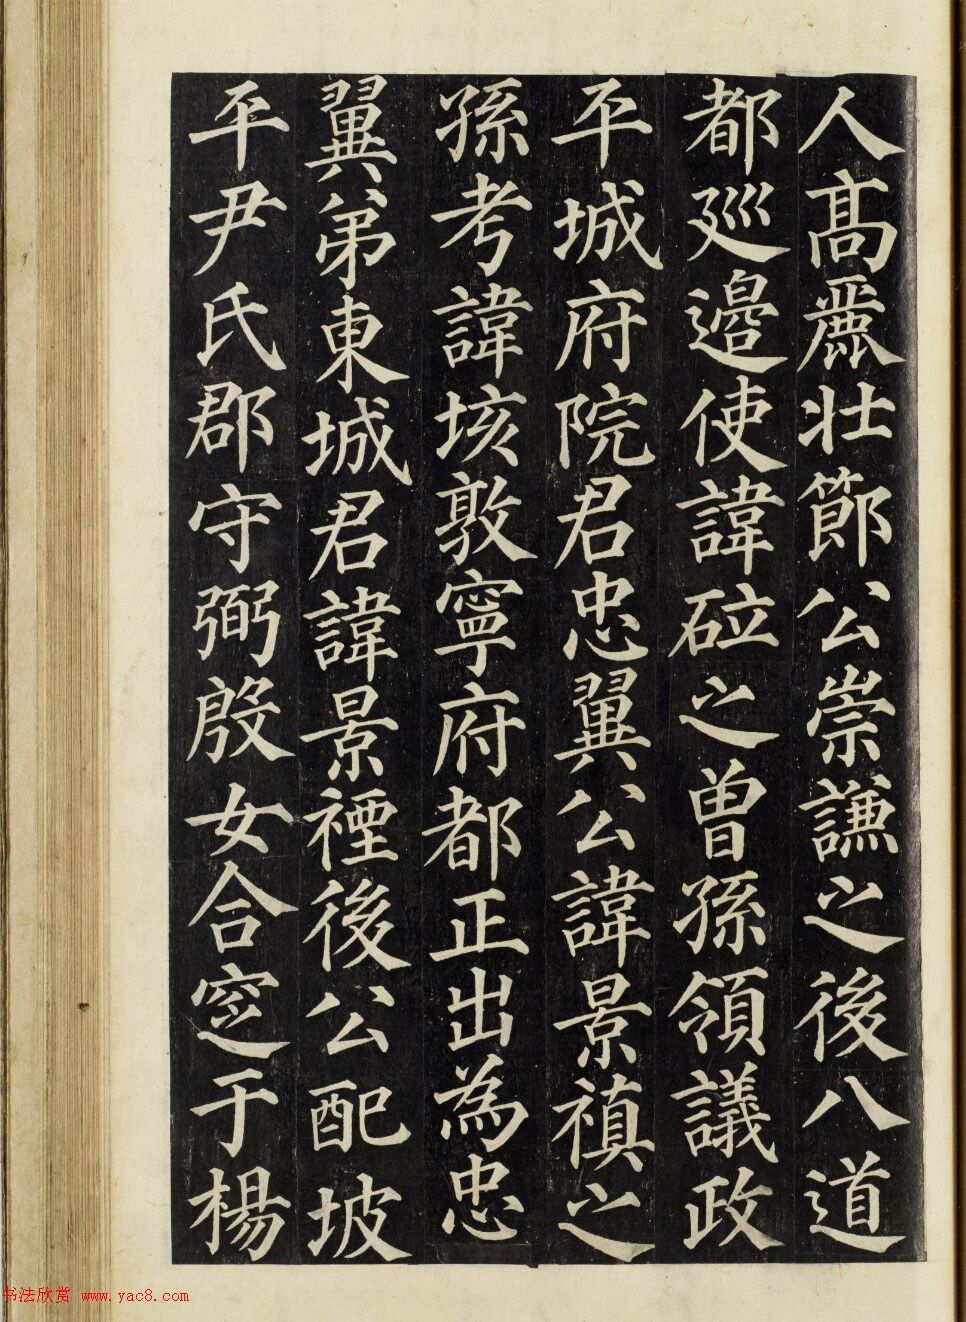 人高麗壯節公崇謙之後八道
都廵邊使諱砬之曾孫領議政
平城府院君忠翼公諱景禛之
孫考諱垓敦寧府都正出為忠
翼弟東城君諱景禋後公配坡
平尹氏郡守弼殷女合窆于楊
书法欣赏 www.yac8.com